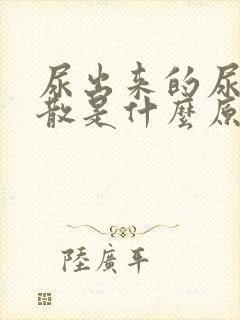 尿出来的尿
散是什麼原
陸廣平